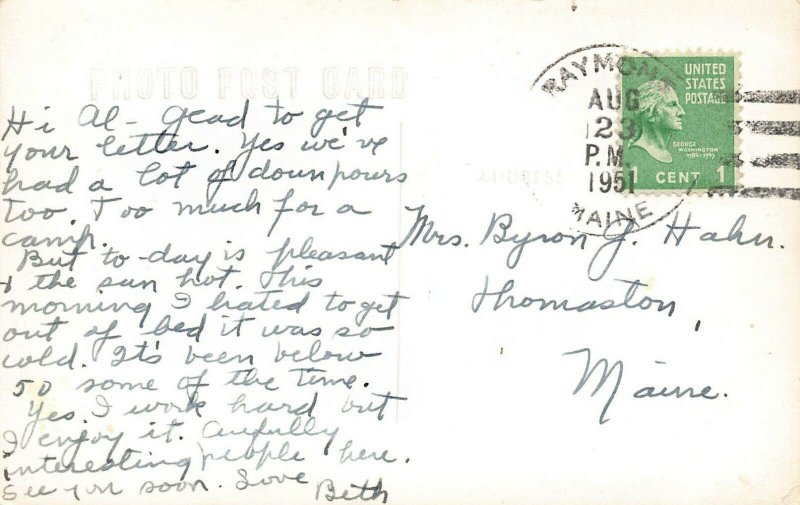 PHOTO POST CARD
Hi Al- Glad to get
your letter. Yes we've
had a lot of downpours
too. Too much for a
camp.
But to-day is pleasant
& the sun hot. This
morning I hated to get
out of bed it was so
cold. It's been below
50 some of the time.
Yes. I work hard but
I enjoy it. Awfully
interesting people here.
See you soon. Love
Beth
RAYMOND
AUG
23
P.M.
1951
MAINE
UNITED
STATES
POSTAGE
GEORGE
WASHINGTON
1789-1797
1 CENT 1
ADDRESS
Mrs. Byron J. Hahn.
Thomaston,
Maine.